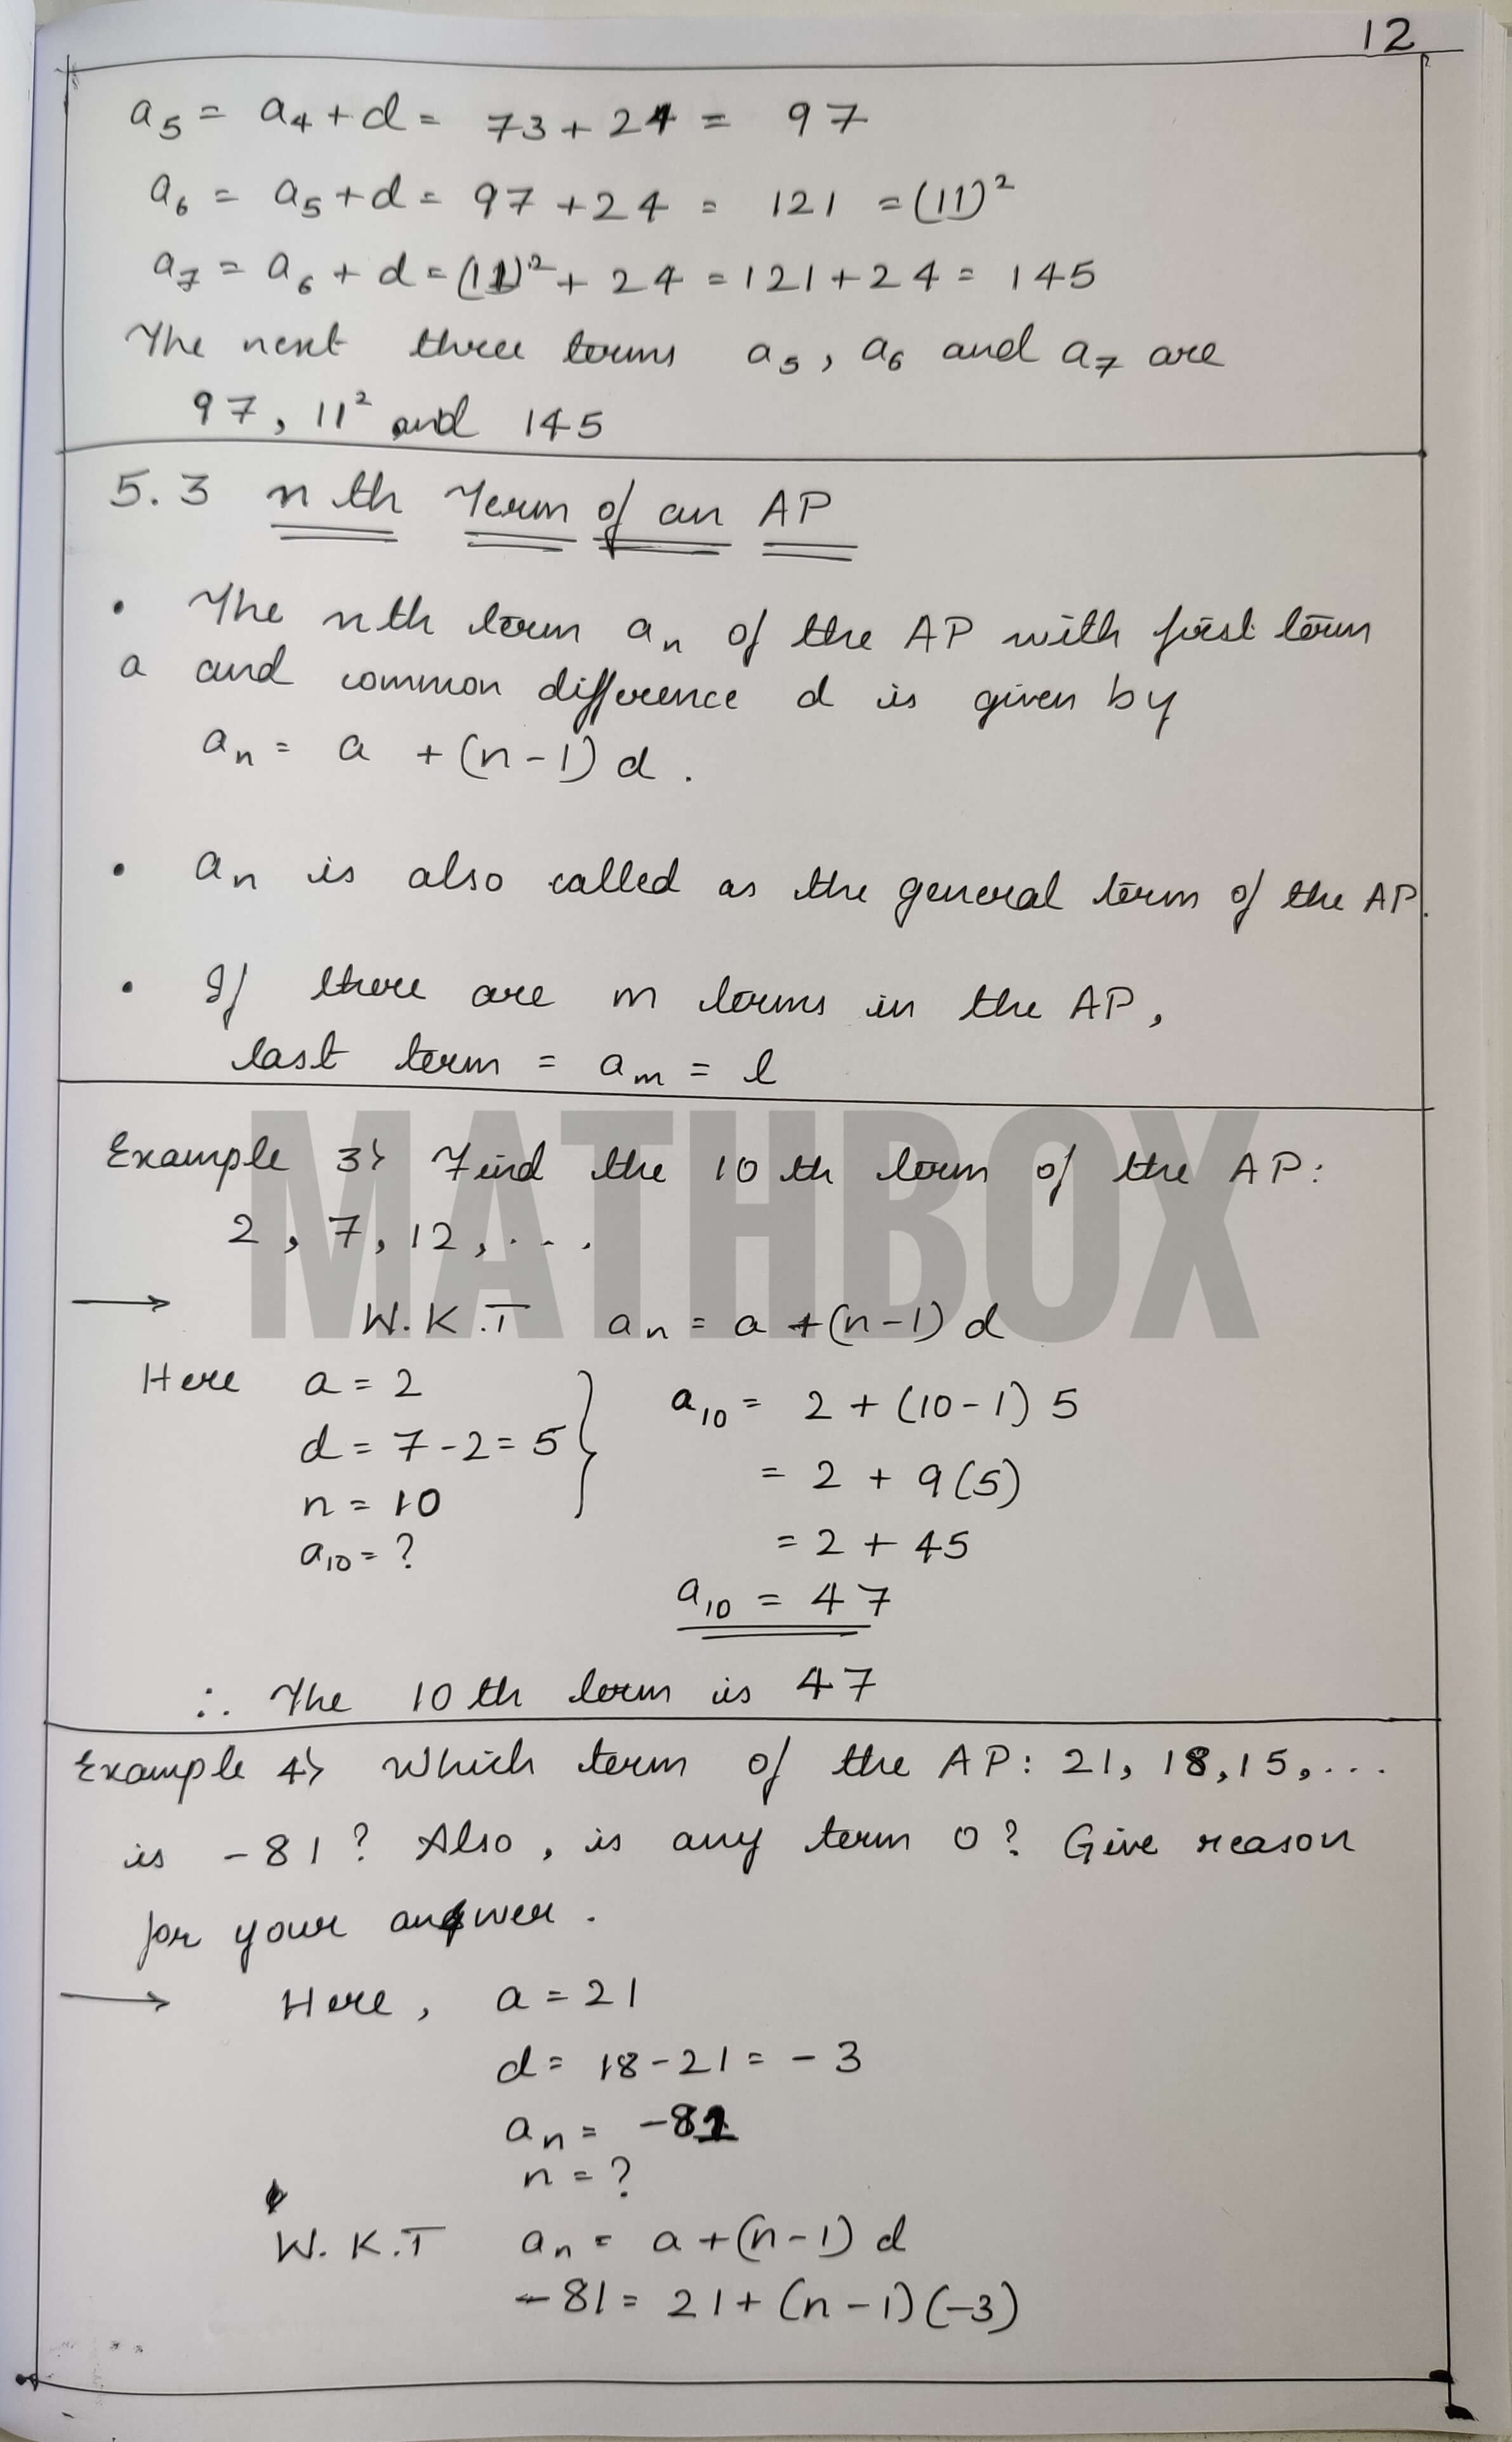 12
a₅ = a₄ + d = 73 + 24 = 97
a₆ = a₅ + d = 97 + 24 = 121 = (11)²
a₇ = a₆ + d = (11)² + 24 = 121 + 24 = 145
The next three terms a₅, a₆ and a₇ are
97, 11² and 145
5.3 nth Term of an AP
• The nth term aₙ of the AP with first term
a and common difference d is given by
aₙ = a + (n-1) d.
• aₙ is also called as the general term of the AP.
• If there are m terms in the AP,
last term = aₘ = l
MATHBOX
Example 3> Find the 10 th term of the AP:
2, 7, 12, ...
→ W.K.T aₙ = a + (n-1) d
Here a = 2 } a₁₀ = 2 + (10-1) 5
d = 7-2 = 5 = 2 + 9(5)
n = 10 = 2 + 45
a₁₀ = ? a₁₀ = 47
∴ The 10 th term is 47
Example 4> Which term of the AP: 21, 18, 15, ...
is -81? Also, is any term 0? Give reason
for your answer.
→ Here, a = 21
d = 18 - 21 = -3
aₙ = -81
n = ?
W.K.T aₙ = a + (n-1) d
-81 = 21 + (n-1) (-3)